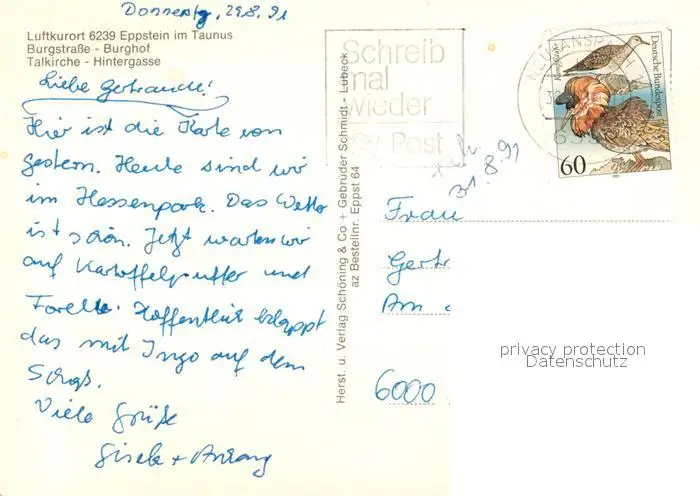 Donnerstg, 29.8.91
Luftkurort 6239 Eppstein im Taunus
Burgstraße - Burghof
Talkirche - Hintergasse
Liebe Gertraude!
Hier ist die Karte von
gestern. Heute sind wir
im Hessenpark. Das Wetter
ist schön. Jetzt warten wir
auf Kartoffelpuffer und
Forelle. Hoffentlich klappt
das mit Ingo auf dem
Viele Grüße
Gisela +
Herst. u. Verlag Schöning & Co + Gebrüder Schmidt - Lübeck
az Bestellnr. Eppst 64
Schreib
mal
wieder
Post
NEU-ANSP
Deutsche Bundespost
Kampfläufer
60
31.8.91
Frau
Gertr
Am
6000
privacy protection
Datenschutz